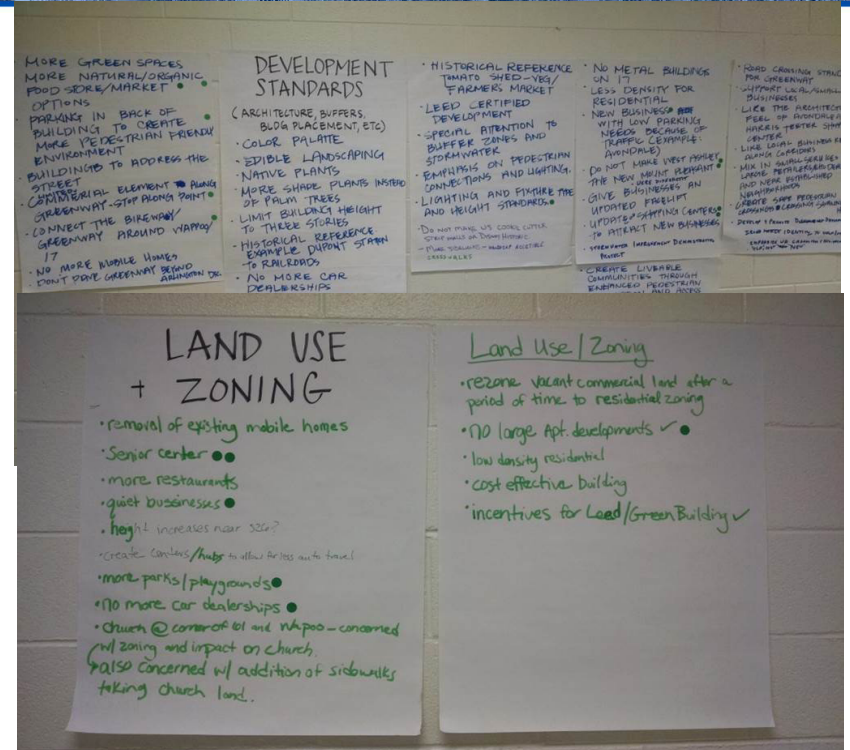 MORE GREEN SPACES
MORE NATURAL/ORGANIC
FOOD STORE/MARKET
OPTIONS
PARKING IN BACK OF
BUILDING TO CREATE
MORE PEDESTRIAN FRIENDLY
ENVIRONMENT
BUILDINGS TO ADDRESS THE
STREET
COMMERCIAL ELEMENT ALONG
GREENWAY-STOP ALONG POINT
CONNECT THE BIKEWAY/
GREENWAY AROUND WAPPOO/
17
NO MORE MOBILE HOMES
DON'T PAVE GREENWAY BEYOND
ARLINGTON DR.
DEVELOPMENT
STANDARDS
(ARCHITECTURE, BUFFERS,
BLDG PLACEMENT, ETC)
• COLOR PALATTE
• EDIBLE LANDSCAPING
• NATIVE PLANTS
• MORE SHADE PLANTS INSTEAD
OF PALM TREES
• LIMIT BUILDING HEIGHT
TO THREE STORIES
• HISTORICAL REFERENCE
EXAMPLE DUPONT STATEN
TO RAILROADS
• NO MORE CAR
DEALERSHIPS
• HISTORICAL REFERENCE
TOMATO SHED-VEG/
FARMERS MARKET
• LEED CERTIFIED
DEVELOPMENT
• SPECIAL ATTENTION TO
BUFFER ZONES AND
STORMWATER
• EMPHASIS ON PEDESTRIAN
CONNECTIONS AND LIGHTING.
• LIGHTING AND FIXTURE TYPE
AND HEIGHT STANDARDS
- DO NOT MAKE US COOKIE CUTTER
STRIP MALLS OR DISNEY HISTORIC
CROSSWALKS
• NO METAL BUILDINGS
ON 17
• LESS DENSITY FOR
RESIDENTIAL
• NEW BUSINESS
WITH LOW PARKING
NEEDS BECAUSE OF
TRAFFIC (EXAMPLE:
AVONDALE)
• DO NOT MAKE WEST ASHLEY
THE NEW MOUNT PLEASANT
• GIVE BUSINESSES AN
UPDATED FACELIFT
• UPDATE SHOPPING CENTERS
TO ATTRACT NEW BUSINESSES
• STORMWATER IMPROVEMENT DEMONSTRATION
PROJECT
• CREATE LIVEABLE
COMMUNITIES THROUGH
ENHANCED PEDESTRIAN
AND ACCESS
• ROAD CROSSING
FOR GREENWAY
• SUPPORT LOCAL/SMALL
BUSINESSES
• LIKE THE
FEEL OF AVONDALE
HARRIS TEETER
CENTER
• LIKE LOCAL BUSINESS
ALONG CORRIDORS
• MIX IN SMALL
LARGE RETAILERS
AND NEAR ESTABLISHED
NEIGHBORHOODS
CREATE SAFE PEDESTRIAN
LAND USE
+ ZONING
• removal of existing mobile homes
• Senior center
• more restaurants
• quiet bussinesses
• height increases near 526?
• create centers/hubs to allow for less auto travel
• more parks/playgrounds
• no more car dealerships
• church @ corner of 61 and Wappoo-concerned
w/ zoning and impact on church.
also concerned w/ addition of sidewalks
taking church land.
Land Use/Zoning
• rezone vacant commercial land after a
period of time to residential zoning
• no large Apt. developments ✓
• low density residential
• cost effective building
• incentives for Leed/Green Building ✓